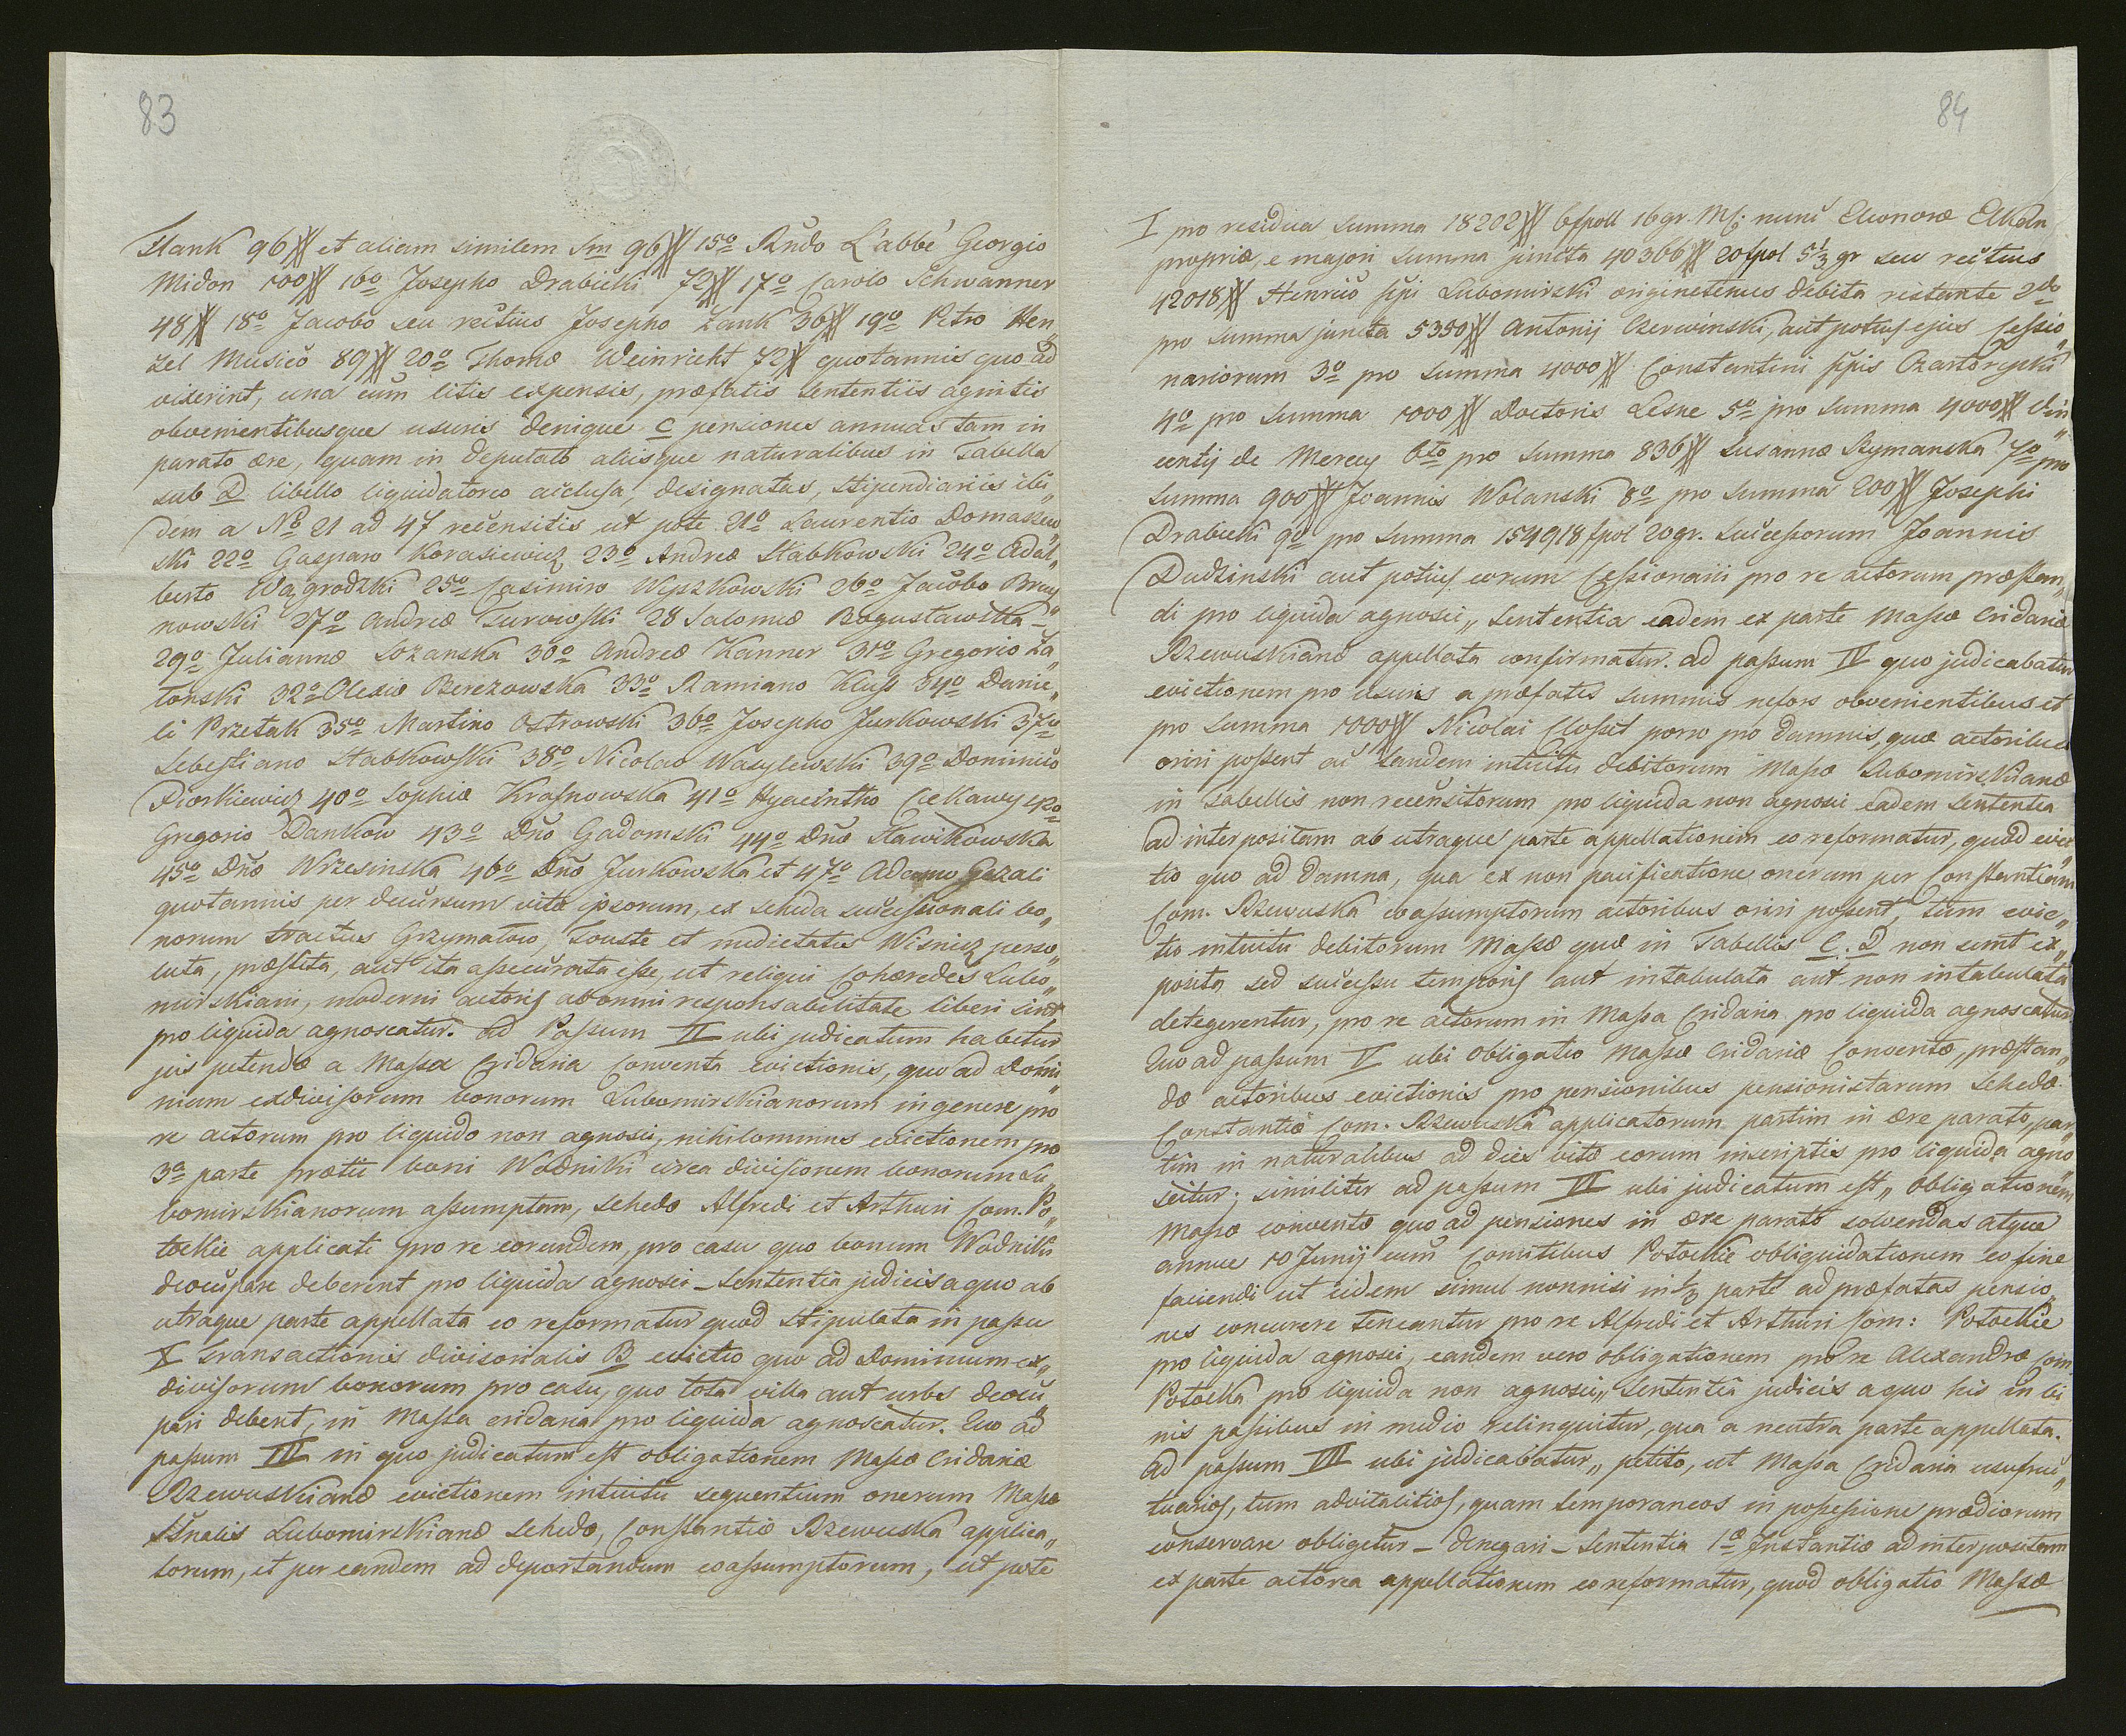 83
Hank 96# et aliam similem Sm 96# 15o Rndo L'abbé Georgio
Midon 100# 16o Josepho Drabicki 72# 17o Carolo Schwanner
48# 18o Jacobo seu rectius Josepho Lank 36# 19o Petro Hen
zel Musico 89# 20o Thomæ Weinricht 72# quotannis quo ad
vixerint, una cum litis expensis, præfatis sententiis agnitis
obvenientibusque usuris denique C pensiones annuas tam in
parato ære, quam in deputato aliisque naturalibus in Tabella
sub D libello liquidatorio acclusa, designatas, stipendiariis ibi„
dem a No 21 ad 47 recensitis ut pote 21o Laurentio Domaszew„
ski 22o Gasparo Korasiewicz 23o Andreæ Stabkowski 24o Adal„
berto Wagrodzki 25o Casimiro Wyszkowski 26o Jacobo Bray
nowski 27o Andreæ Turowski 28 Salomeæ Bogusławska
29o Juliannæ Lozanska 30o Andreæ Kanner 31o Gregorio Za
tonski 32o Olexiæ Berezowska 33o Damiano Kluss 34o Danie„
li Przetak 35o Martino Ostrowski 36o Josepho Jurkowski 37o
Sebestiano Stabkowski 38o Nicolao Wasylewski 39o Dominico
Piorkiewicz 40o Sophiæ Krasnowska 41o Hyacintho Ciekawy 42o
Gregorio Dankow 43o Dño Gadomski 44o Dñæ Sławikowska
45o Dñæ Wrzesinska 46o Dñæ Jurkowska et 47o Adamo Gozali
quotannis per decursum vitæ ipsorum, ex scheda successionali bo„
norum tractus Grzymałow, Touste et medietatis Wisnicz perso„
luta, præstita, aut ita assecurata esse, ut reliqui cohæredes Lubo„
mirskiani, moderni actores ab omni responsabilitate liberi sint
pro liquida agnoscatur. Ad Passum II ubi judicatum habetur
jus petendæ a Massa Cridaria conventa evictionis, quo ad Domi
nium exdivisorum bonorum Lubomirskianorum in genere pro
re actorum pro liquido non agnosci, nihilominus evictionem pro
3a parte prætii boni Wodniki circa divisionem bonorum Lu„
bomirskianorum assumptam, schedæ Alfredi et Arthuri Com. Po„
tockie applicati pro re eorundem, pro casu quo bonum Wodniki
deoccupare deberent pro liquida agnosci – sententia judicis a quo ab
utraque parte appellata eo reformatur quod stipulata in passu
X Transactionis divisorialis B evictio quo ad Dominium ex„
divisorum bonorum pro casu, quo tota villa aut urbs deoccu
pari debent, in Massa cridaria pro liquida agnoscatur. Quo ad
passum III in quo judicatum est obligationem Massæ Cridariæ
Rzewuskianæ evictionem intuitu sequentium onerum Massæ
Lubomirskianæ schedæ, Constantiæ Rzewuska applica„
torum, et per eandem ad deportandum coassumptorum, ut pote
84
I pro residua summa 18202# 6 fpoll 16 gr. Mf: nunc Eleonoræ Elkan
propriæ, e majori summa juncta 40366# 20 fpol 5 1/3 gr seu rectius
42018# Henrico ppi Lubomirski originetenus debita restante 2do
pro summa juncta 5350# Antonij Czerwinski, aut potius ejus Cessio„
nariorum 3o pro summa 4000# Constantini ppis Czartoryski
4o pro summa 1000# Doctoris Leske 5o pro summa 4000# Vin„
centij de Merey 6to pro summa 836# Susannæ Rymanska 7o pro
summa 900# Joannis Wolanski 8o pro summa 200# Josephi
Drabicki 9o pro summa 154918 fpol 20 gr. successorum Joannis
Dudzinski aut potius eorum Cessionarii pro re actorum præstan„
di pro liquida agnosci„ sententia eadem ex parte Massæ Cridariæ
Rzewuskianæ appellata confirmatur. ad passum IV quo judicabatur
evictionem pro usuris a præfatis summis obvenientibus et
pro summa 1000# Nicolai Closset porro pro damnis, quæ actoribus
oriri possent ac tandem intuitu debitorum Massæ Lubomirskianæ
in Tabellis non recensitorum pro liquida non agnosci eadem sententia
ad interpositam ab utraque parte appellationem eo reformatur, quod evic„
tio quo ad damna, quæ ex non pacificatione onerum per Constantiam
Com. Rzewuska coassumptorum actoribus oriri possent, tum evic„
tio intuitu debitorum Massæ quæ in Tabellis C. D non sunt ex„
posita, sed successu temporis aut intabulata aut non intabulata
detegerentur, pro re actorum in Massa Cridaria pro liquida agnoscatur
Quo ad passum V ubi obligatio Massæ Cridariæ Conventæ, præstan„
dæ actoribus evictionis pro pensionibus pensionistarum schedæ
Constantiæ Com. Rzewuska applicatorum partim in ære parato, par„
tim in naturalibus ad dies vitæ eorum inscriptis pro liquida agno
scitur; similiter ad passum VI ubi judicatum est„ obligationem
Massæ conventæ quo ad pensiones in ære parato solvendas atque
annue 10 Junij cum Comitibus Potockie obliquidationem eo fine
faciendi ut eidem simul nonnisi in 1/3 parte ad præfatas pensio„
nes concurrere teneantur pro re Alfredi et Arthuri Com: Potockie
pro liquida agnosci, eandem vero obligationem pro re Alexandræ Com
Potocka pro liquida non agnosci„ sententia judicis a quo his in bi
nis passibus in medio relinquitur, qua a neutra parte appellata.
Ad passum VII ubi judicabatur„ petito, ut Massa Cridaria usufruc„
tuarios, tum advitalitios, quam temporaneos in possessione prædiorum
conservare obligetur – denegari – sententia 1æ Instantiæ ad interpositam
ex parte actorea appellationem eo reformatur, quod obligatio Massæ